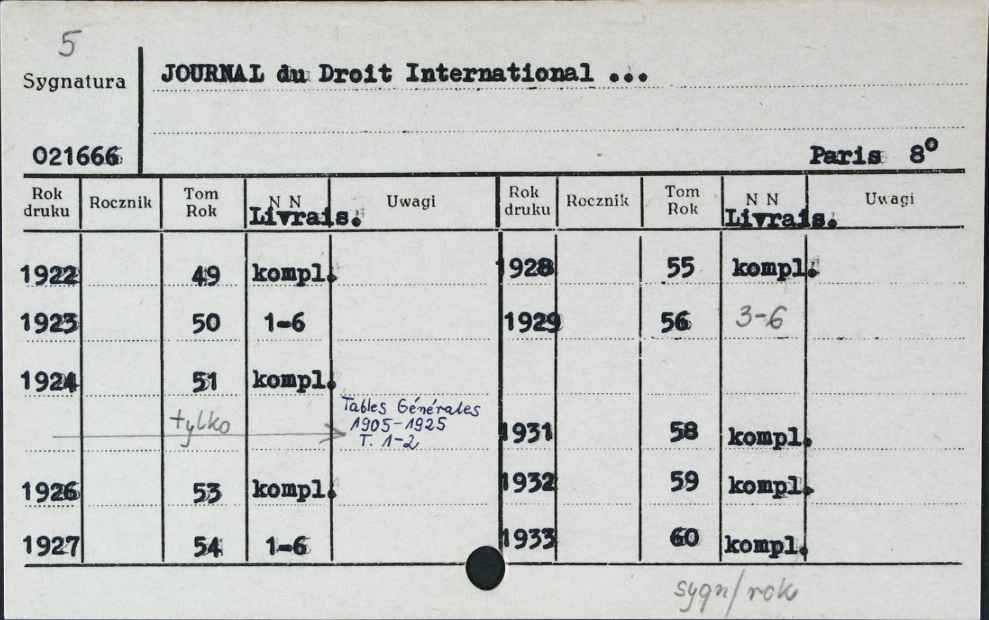 5
Sygnatura
JOURNAL du Droit International ...
021666
Paris 8°
Rok druku Rocznik Tom Rok N N Livrais. Uwagi Rok druku Rocznik Tom Rok N N Livrais. Uwagi
1922 49 kompl. 1928 55 kompl.
1923 50 1-6 1929 56 3-6
1924 51 kompl.
tylko Tables Générales
1905-1925
T. 1-2
1931 58 kompl.
1926 53 kompl. 1932 59 kompl.
1927 54 1-6 1933 60 kompl.
sygn/rok